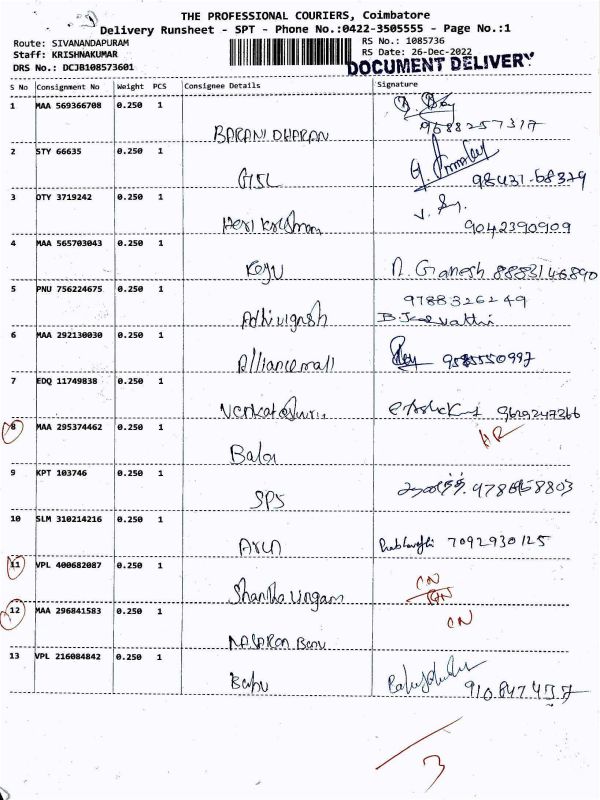 THE PROFESSIONAL COURIERS, Coimbatore
Delivery Runsheet - SPT - Phone No.:0422-3505555 - Page No.:1
Route: SIVANANDAPURAM RS No.: 1085736
Staff: KRISHNAKUMAR RS Date: 26-Dec-2022
DRS No.: DCJB108573601 DOCUMENT DELIVERY
S No Consignment No Weight PCS Consignee Details Signature
1 MAA 569366708 0.250 1
BARANI DHARAN 9688257317
2 STY 66635 0.250 1
GISL 98431-68379
3 OTY 3719242 0.250 1
Hari Krishnan 9042390909
4 MAA 565703043 0.250 1
Koju N. Ganesh 8883146890
5 PNU 756224675 0.250 1 9788326249
Adhivignesh
6 MAA 292130030 0.250 1
Alliance mall 9585550997
7 EDQ 11749838 0.250 1
9629247366
8 MAA 295374462 0.250 1
Balaji
9 KPT 103746 0.250 1
SPS
10 SLM 310214216 0.250 1
Arun 7092930125
11 VPL 400682087 0.250 1 CN
Shantha lingam
12 MAA 296841583 0.250 1 CN
NASARAN Banu
13 VPL 216084842 0.250 1
Babu
3